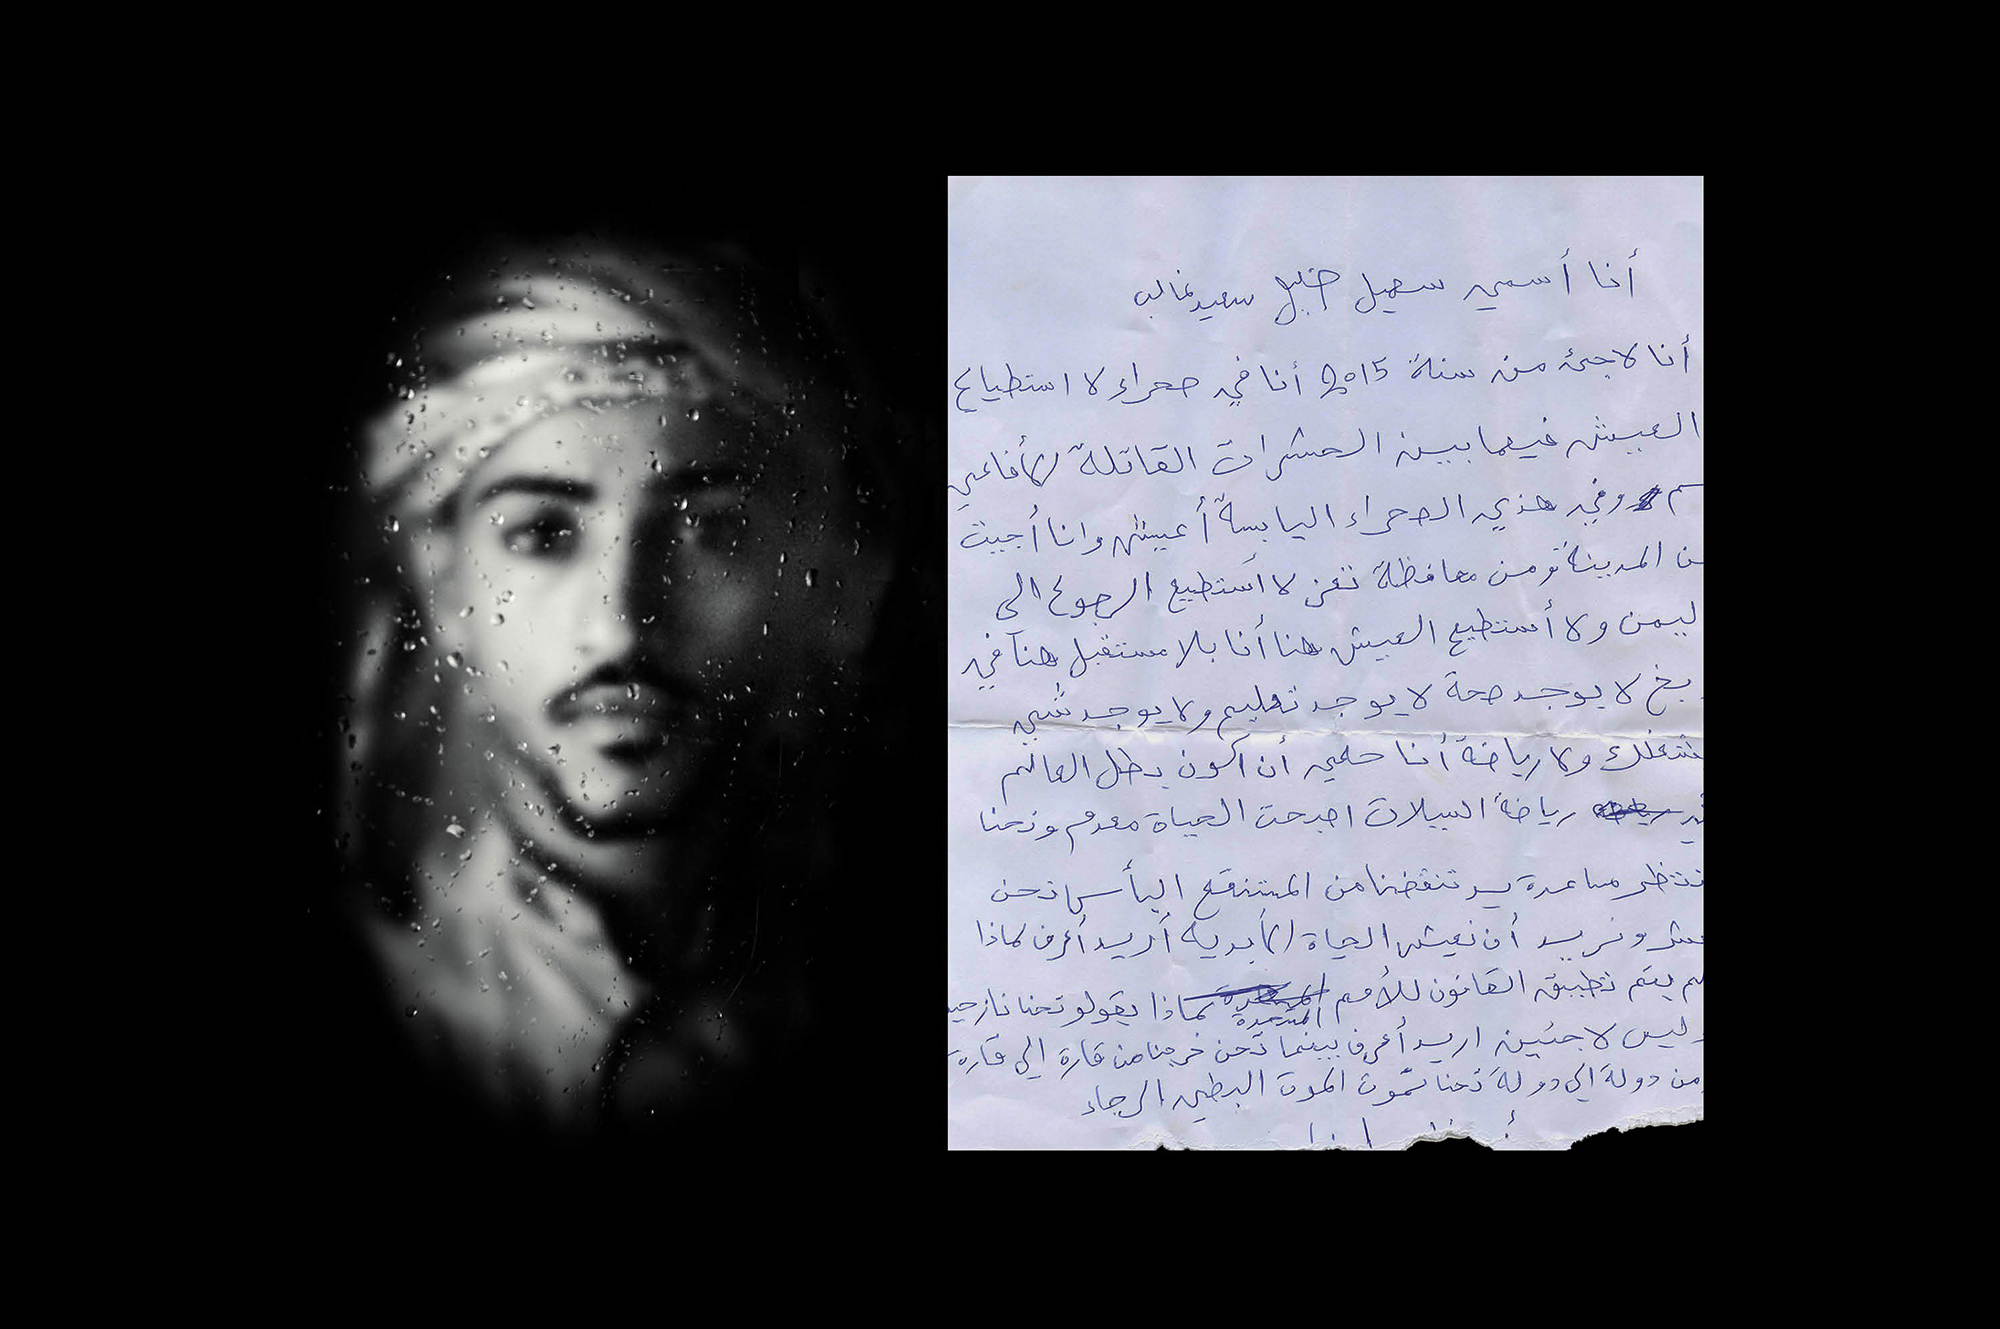 أنا أسمي سهيل خليل سعيد غالب
أنا لاجئ من سنة 2015 أنا في صحراء لا استطياع
العييش فيما بين الحشرات القاتلة الأفاعي
سم وفي هذي الصحراء اليابسة أعيش وانا أجيت
من المدينة ومن محافظة تعز لا أستطيع الرجوع الى
ليمن ولا أستطيع العيش هنا أنا بلا مستقبل هنا في
بخ لا يوجد صحة لا يوجد تعليم ولا يوجد شي
ولا رياضة أنا حلمي أن أكون بطل العالم
رياضة اصبحت الحياة معدم ونحنا
ننتظر مساعدة يد تنقضنا من المستنقع اليأس نحن
ونريد أن نعيش الحياة الأبدية أريد أعرف لماذا
لم يتم تطبيق القانون للأمم المتحدة لماذا يقولو نحنا نازحي
وليس لاجئين اريد أعرف بينما نحن خرجنا من قارة إلى قارة
من دولة الى دولة نحنا نموت الموت البطي الرجاء